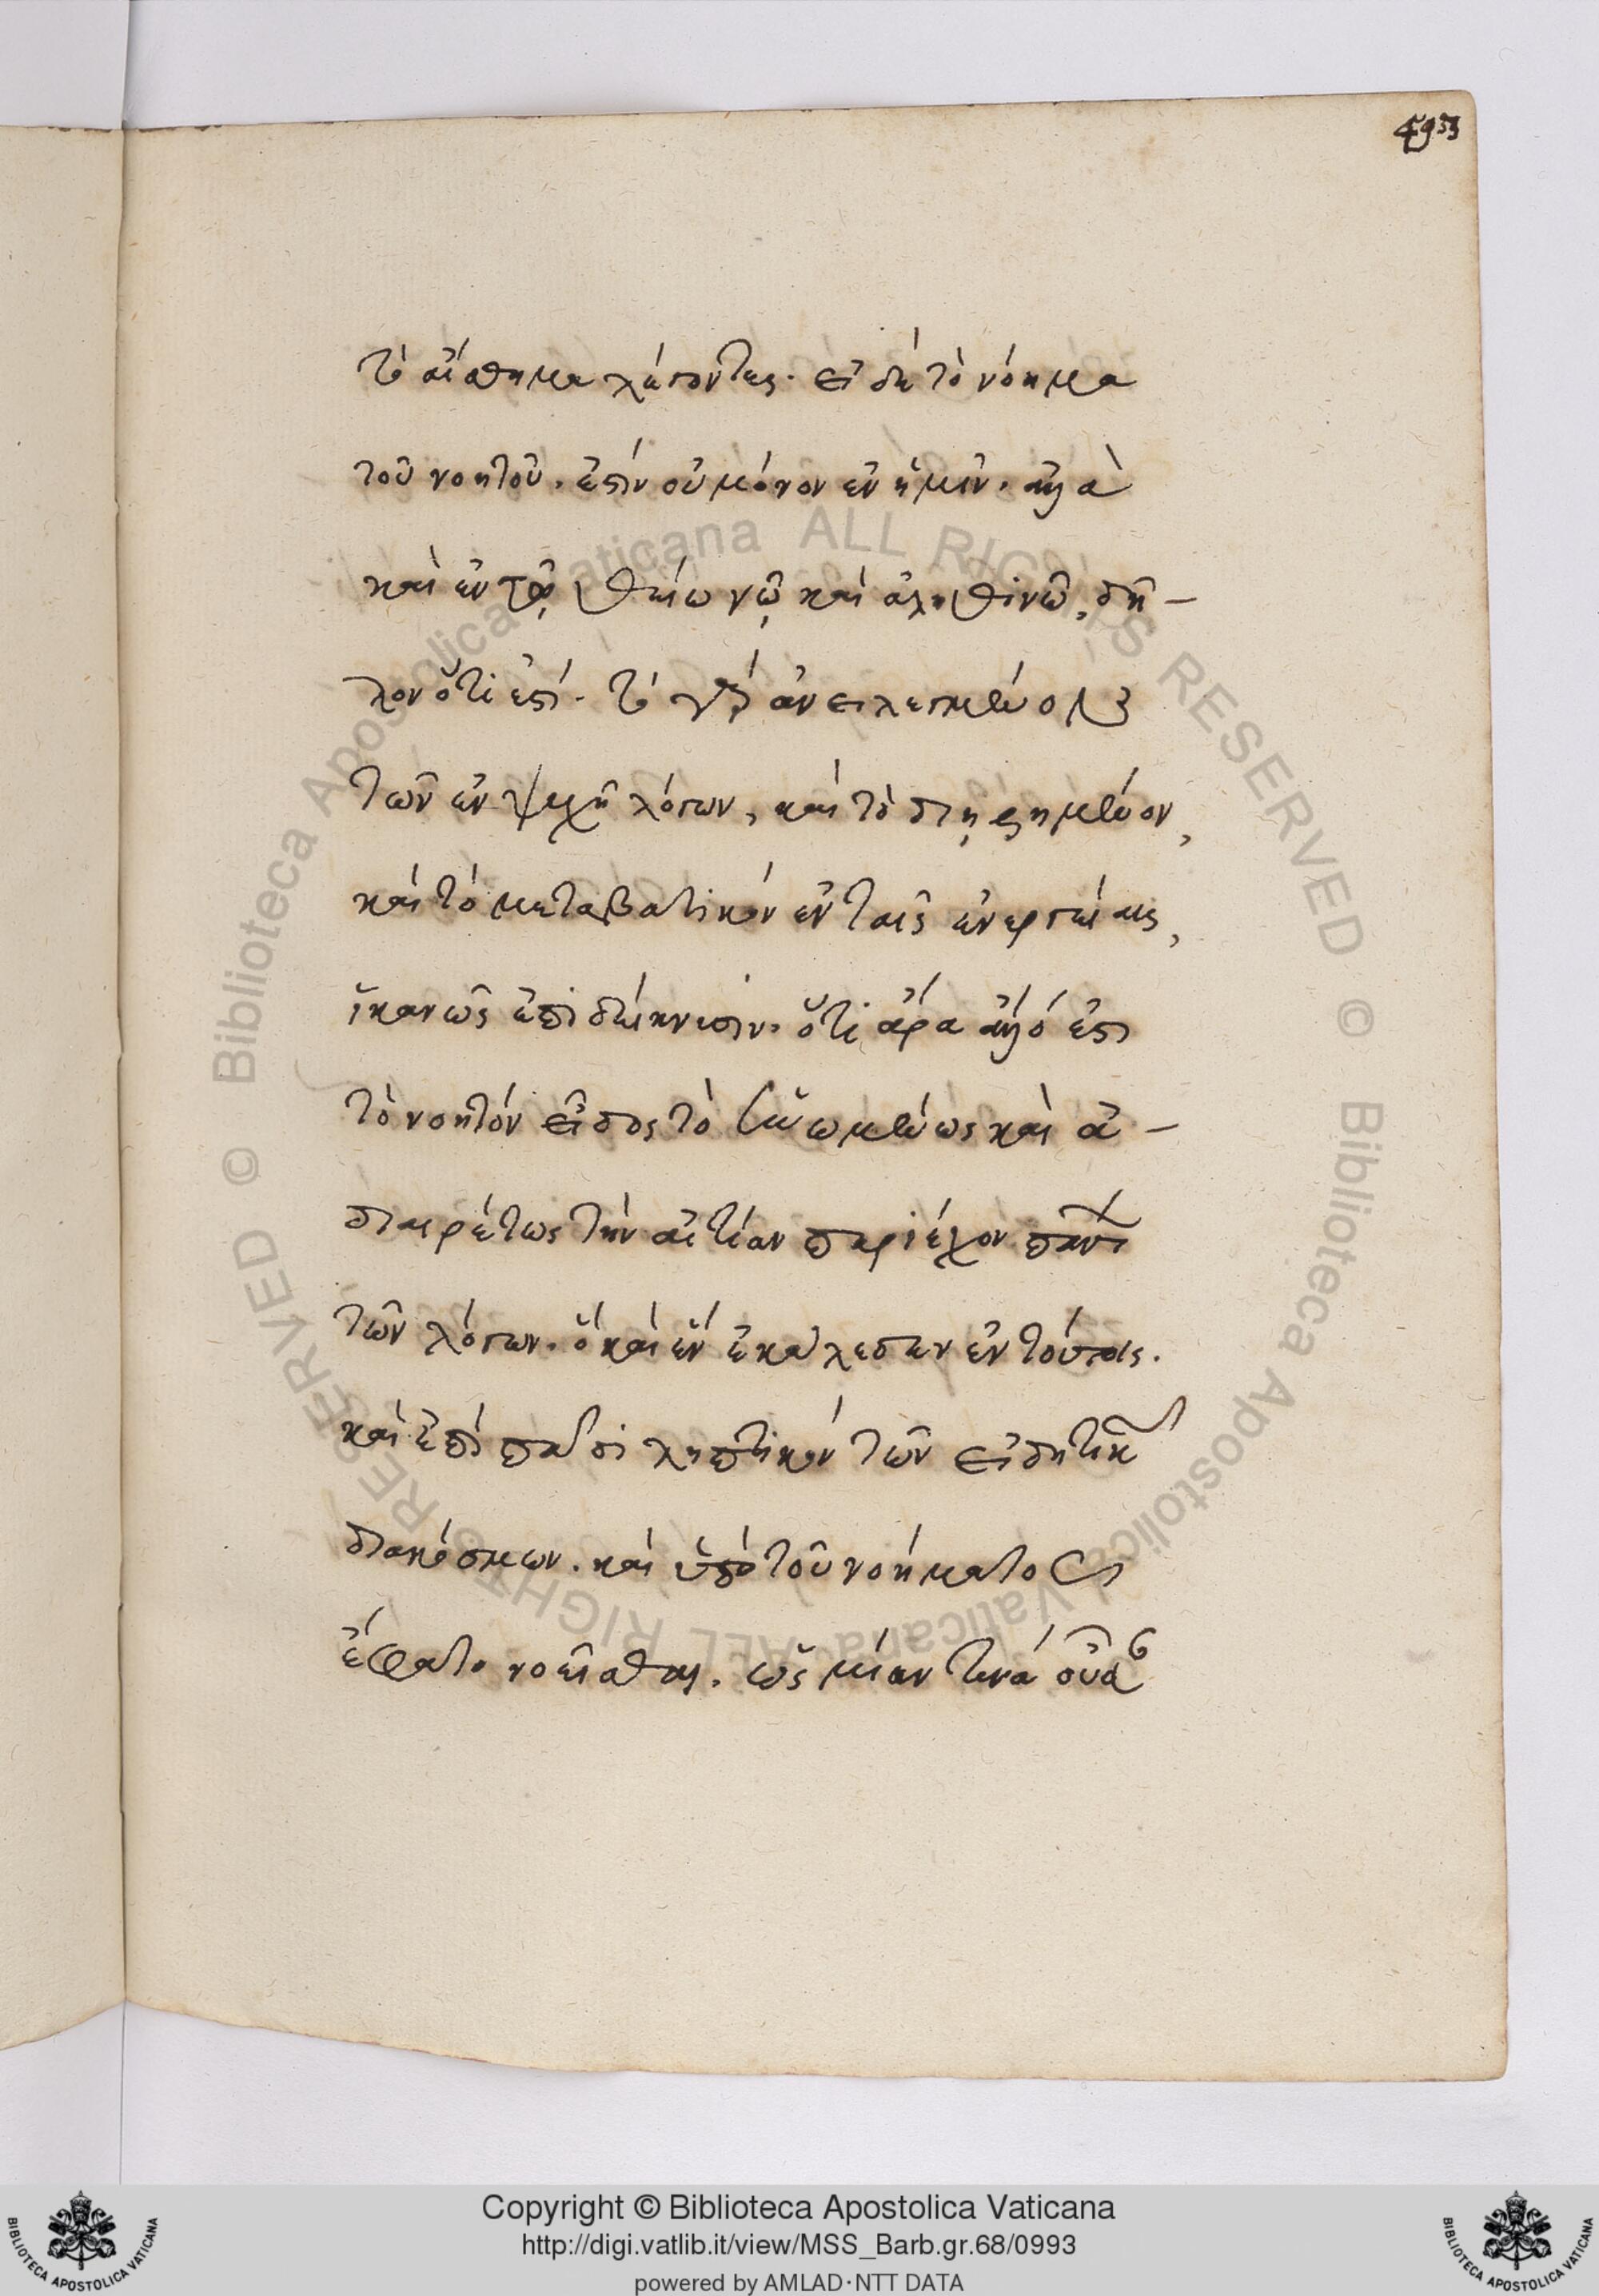 493
τὸ αἴσθημα λέγοντες. εἰ δὴ τὸ νόημα
τοῦ νοητοῦ. ἐστὶν οὐ μόνον ἐν ἡμῖν. ἀλλὰ
καὶ ἐν τῷ θείω νῷ καὶ ἀληθινῶ, δῆ-
λον ὅτι ἐστί. τὸ γὰρ ἀνειλιγμένον
τῶν ἐν ψυχῆ λόγων, καὶ τὸ διῃρημένον,
καὶ τὸ μεταβατικὸν ἐν ταῖς ἐνεργείαις,
ἱκανῶς ἐπιδείκνυσιν. ὅτι ἄρα ἄλλό ἐστι
τὸ νοητὸν εἶδος τὸ ἡνωμένως καὶ ἀ-
διαιρέτως τὴν αἰτίαν περιέχον πάντων
τῶν λόγων. ὃ καὶ ἓν ἐκάλεσεν ἐν τούτοις.
καὶ ἐπὶ πᾶσι ληπτικὸν τῶν εἰδητικῶν
διακόσμων. καὶ ὑπὸ τοῦ νοήματος
ἔφατο νοεῖσθαι. ὡς μίαν τινὰ οὖσαν
© Biblioteca Apostolica Vaticana ALL RIGHTS RESERVED © Biblioteca Apostolica Vaticana ALL RIGHTS RESERVED
Copyright © Biblioteca Apostolica Vaticana
http://digi.vatlib.it/view/MSS_Barb.gr.68/0993
powered by AMLAD·NTT DATA
BIBLIOTECA APOSTOLICA VATICANA
BIBLIOTECA APOSTOLICA VATICANA